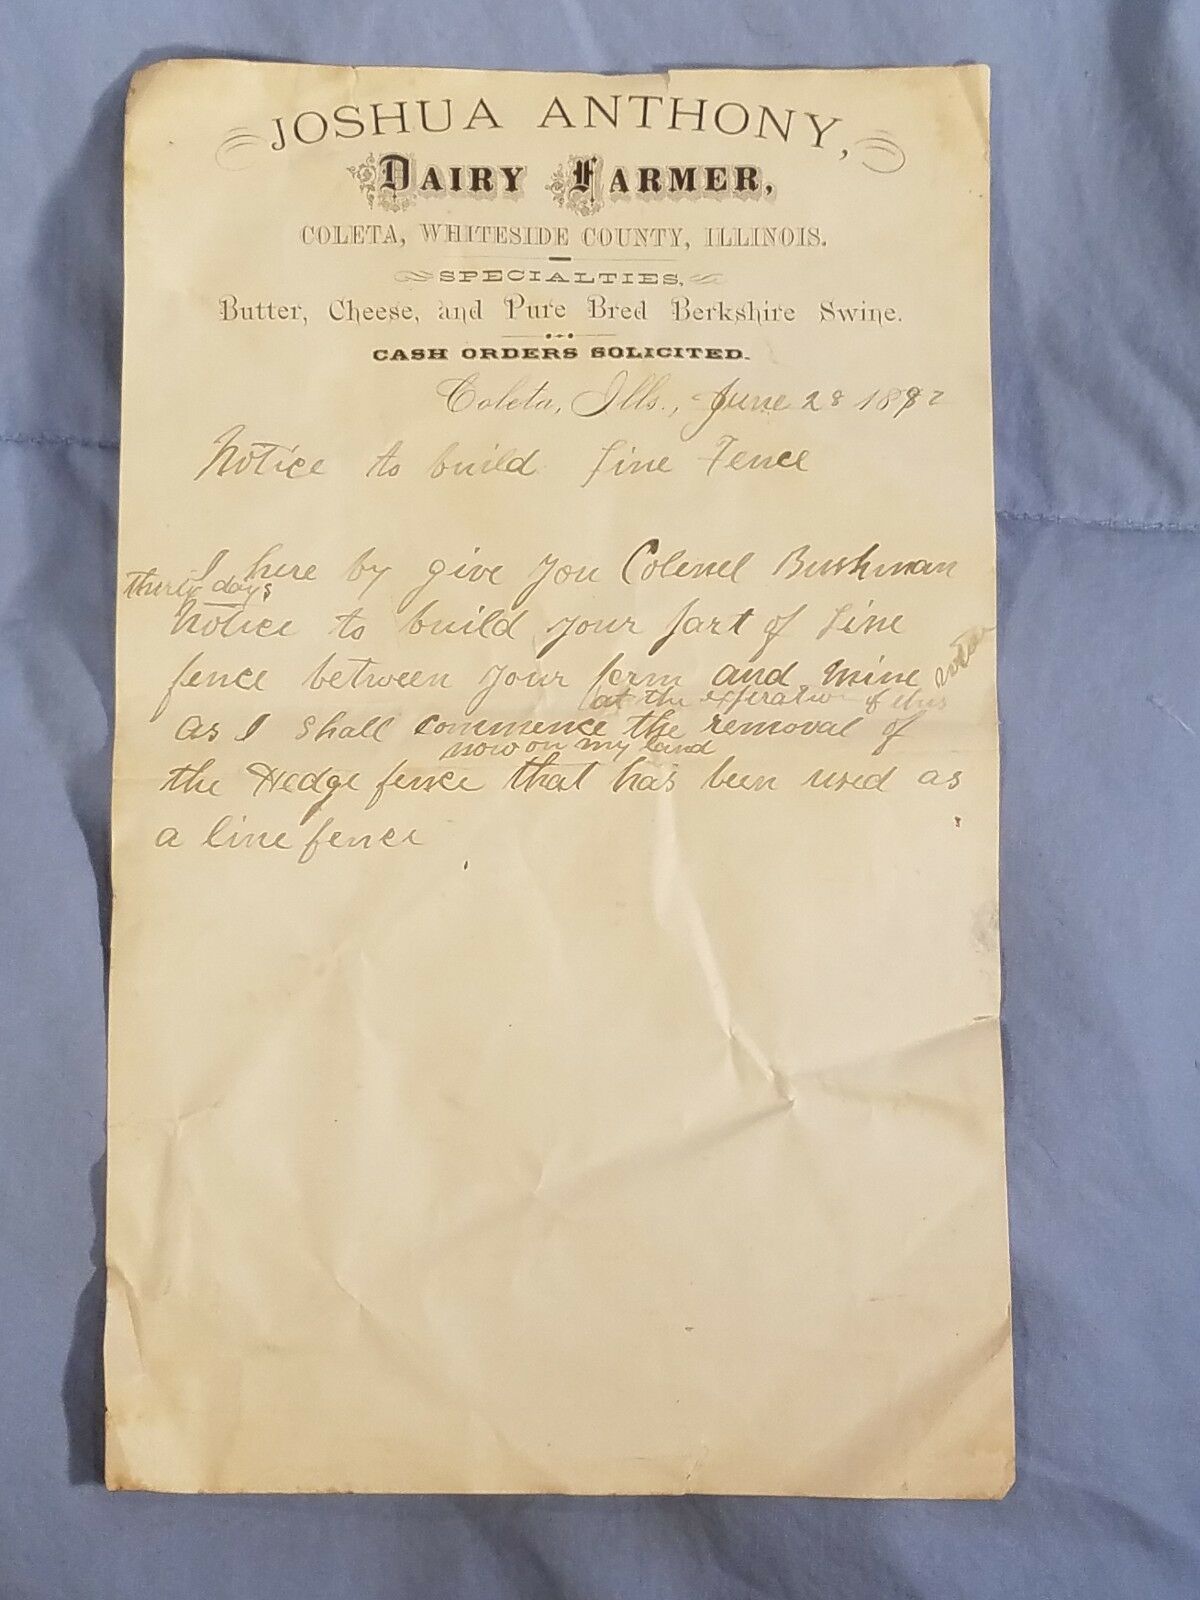 JOSHUA ANTHONY,
DAIRY FARMER,
COLETA, WHITESIDE COUNTY, ILLINOIS.
SPECIALTIES,
Butter, Cheese, and Pure Bred Berkshire Swine.
CASH ORDERS SOLICITED.
Coleta, Ills., June 28 18
Notice to build line Fence
I here by give you Colonel Bushman
thirty days
Notice to build your part of line
fence between your farm and mine
at the expiration of this notice
as I shall commence the removal of
now on my land
the Hedge fence that has been used as
a line fence